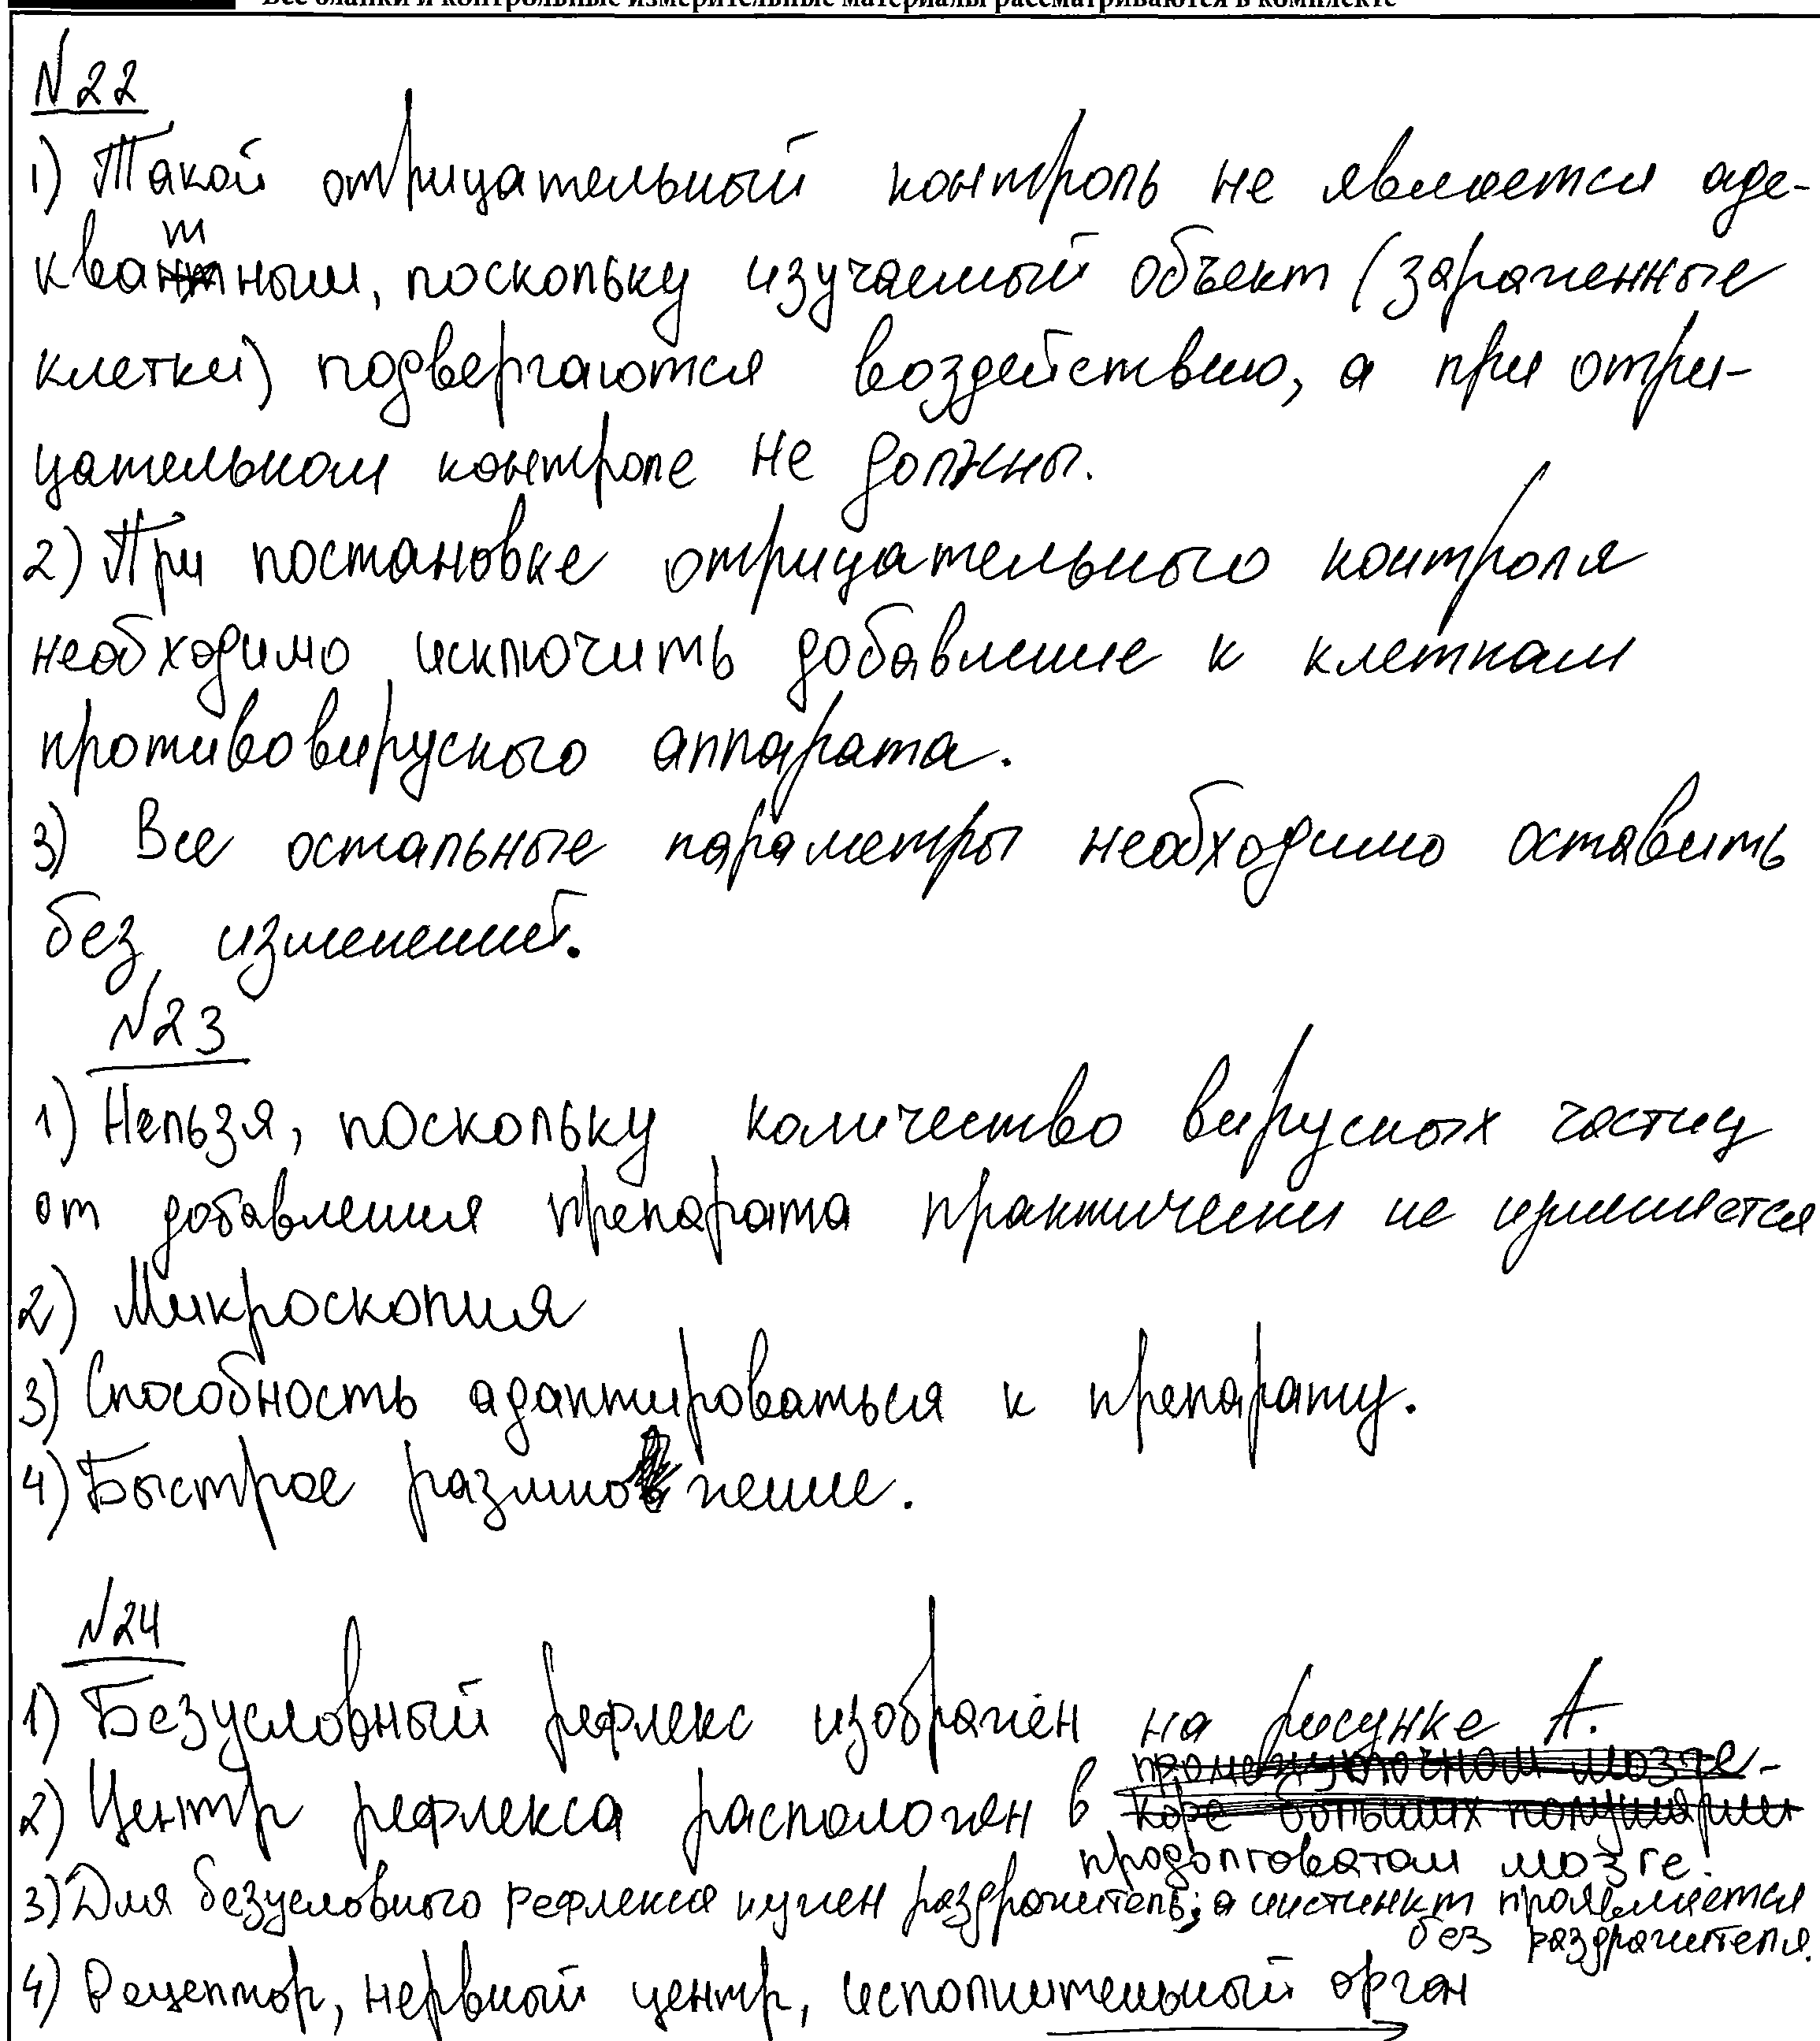 Все бланки и контрольные измерительные материалы рассматриваются в комплекте
№22
1) Такой отрицательный контроль не является аде-
кватным, поскольку изучаемый объект (зараженные
клетки) подвергаются воздействию, а при отри-
цательном контроле не должны.
2) При постановке отрицательного контроля
необходимо исключить добавление к клеткам
противовирусного аппарата.
3) Все остальные параметры необходимо оставить
без изменений.
№23
1) Нельзя, поскольку количество вирусных частиц
от добавления препарата практически не изменяется
2) Микроскопия
3) Способность адаптироваться к препарату.
4) Быстрое размножение.
№24
1) Безусловный рефлекс изображён на рисунке А.
промежуточном мозге-
2) Центр рефлекса расположен в коре больших полушарий
продолговатом мозге.
3) Для безусловного рефлекса нужен раздражитель, а инстинкт проявляется
без раздражителя.
4) Рецептор, нервный центр, исполнительный орган